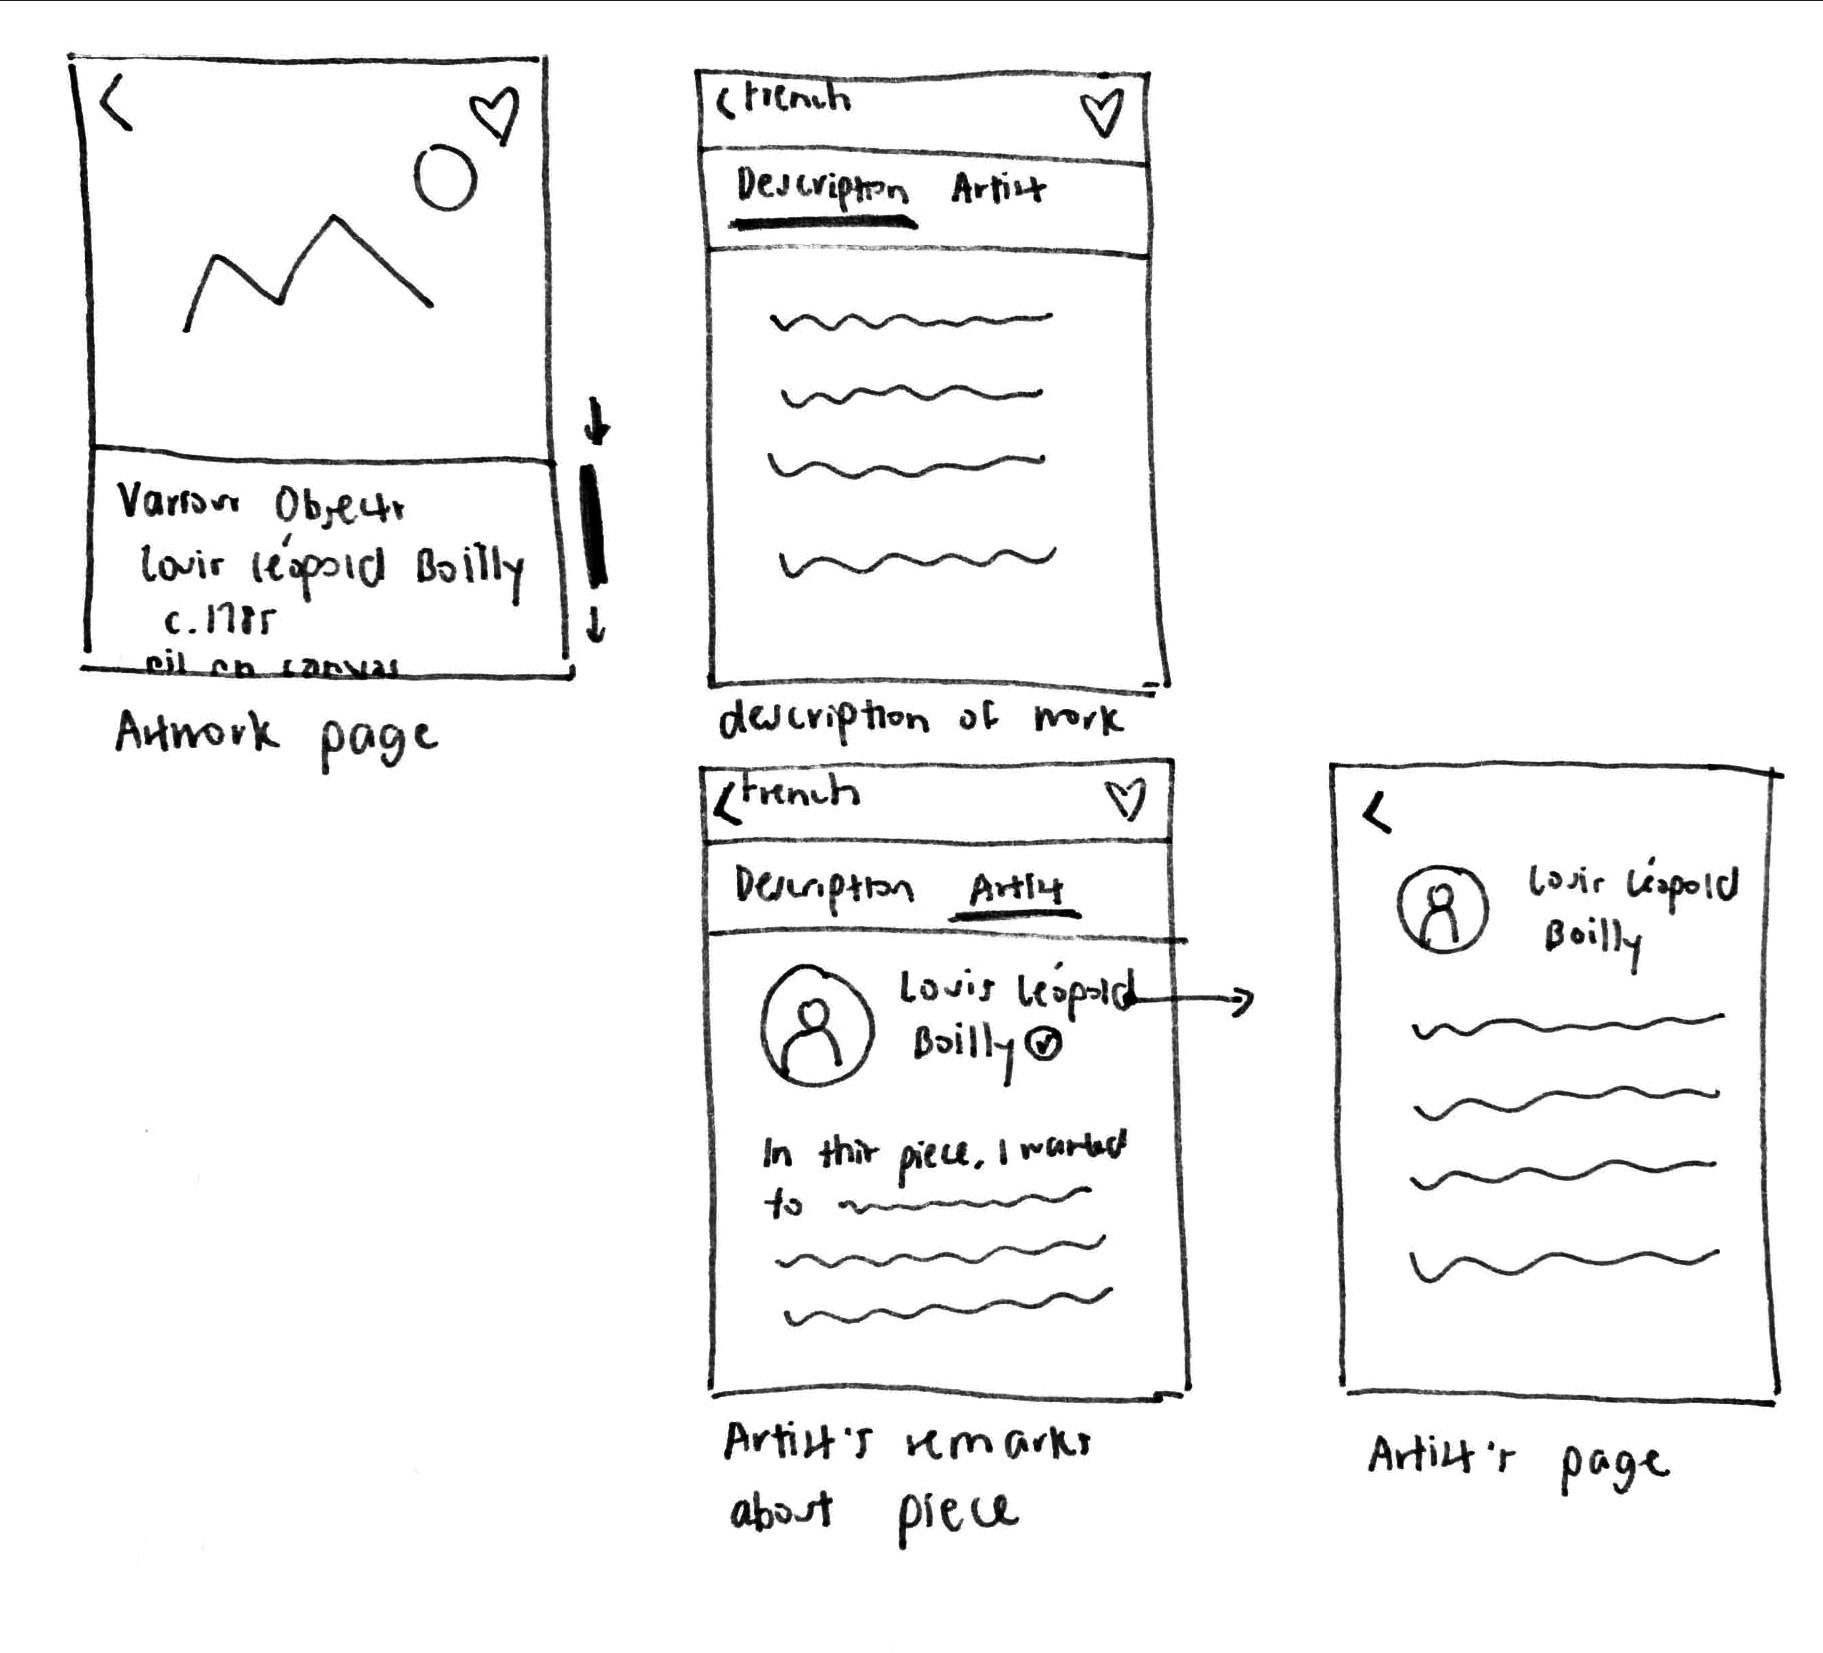 Various Objects
Louis Léopold Boilly
c. 1785
oil on canvas
Artwork page
< French
Description Artist
description of work
< French
Description Artist
Louis Léopold
Boilly
In this piece, I wanted
to
Artist's remarks
about piece
<
Louis Léopold
Boilly
Artist's page